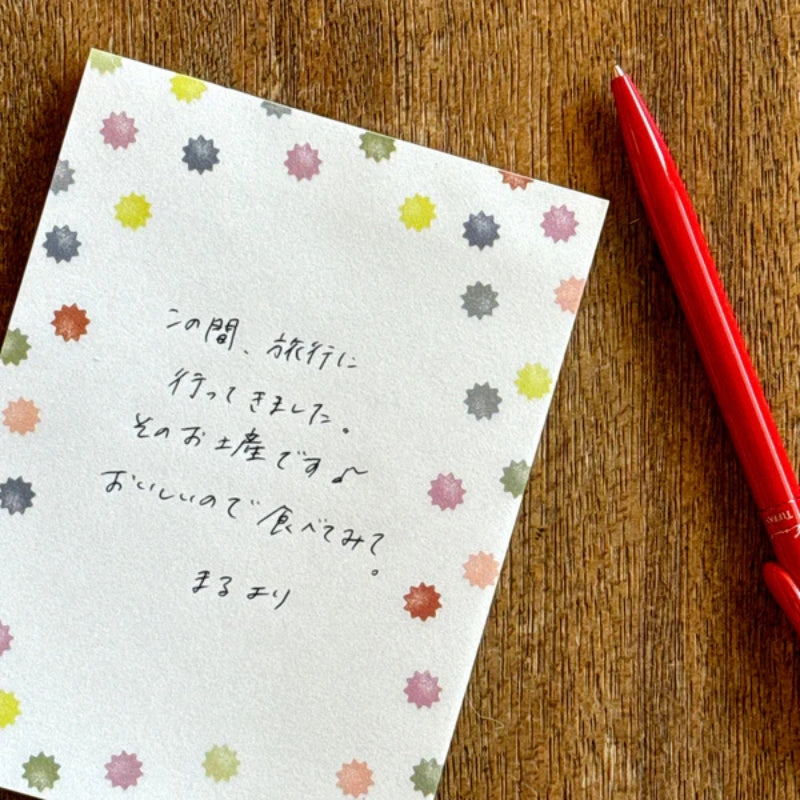 この間、旅行に
行ってきました。
そのお土産です♪
おいしいので食べてみて。
まるより